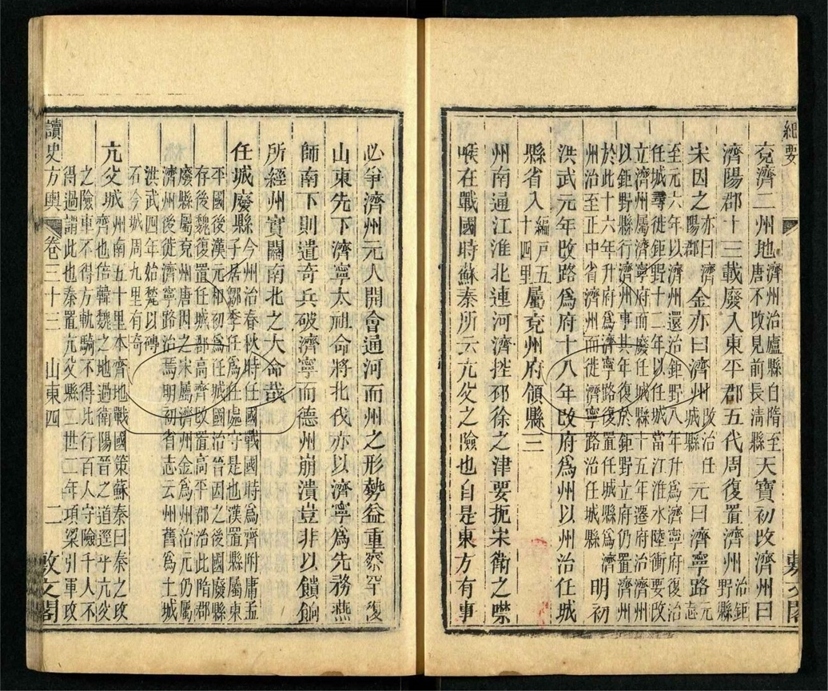 紀要
敷文閣
兗濟二州地濟州治盧縣自隋至唐不改見前長清縣天寶初改濟州曰
濟陽郡十三載廢入東平郡五代周復置濟州治鉅野縣
宋因之亦曰濟陽郡金亦曰濟州改治任城縣元曰濟寧路元志
至元六年以濟州還治鉅野八年升爲濟寧府復治
任城尋徙鉅野十二年以任城當江淮水陸衝要復
立濟州屬濟寧府而廢任城縣十五年遷府治濟州
以鉅野縣行濟州事其年復於鉅野立府仍置濟州
於此十六年升府爲濟寧路復置任城縣爲濟州治至正中省濟州而徙濟寧路治任城縣明初
洪武元年改路爲府十八年改府爲州以州治任城
縣省入編戶五十四里屬兗州府領縣三
州南通江淮北連河濟控邳徐之津要扼宋衛之噤
喉在戰國時蘇秦所云亢父之險也自是東方有事
必爭濟州元人開會通河而州之形勢益重察罕復
山東先下濟寧太祖命將北伐亦以濟寧爲先務燕
師南下則遣奇兵破濟寧而德州崩潰豈非以饋餉
所經州實關南北之大命哉
任城廢縣今州治春秋時任國戰國時爲齊附庸孟子居鄒季任爲任處守是也漢置縣屬東
平國後漢元和初爲任城國治晉因之後國廢縣
存後魏復置任城郡高齊改置高平郡治此隋郡
廢縣屬兗州唐因之宋屬濟州金爲州治元仍屬
濟州後徙濟寧路治焉明初省志云州舊爲土城
洪武四年始甃以磚
石今城周九里有奇
亢父城州南五十里本齊地戰國策蘇秦曰秦之攻齊也倍韓魏之地過衛陽晉之道逕乎亢父
之險車不得方軌騎不得比行百人守險千人不
得過謂此也秦置亢父縣二世二年項梁引軍攻
讀史方輿 卷三十三 山東四 二 敷文閣